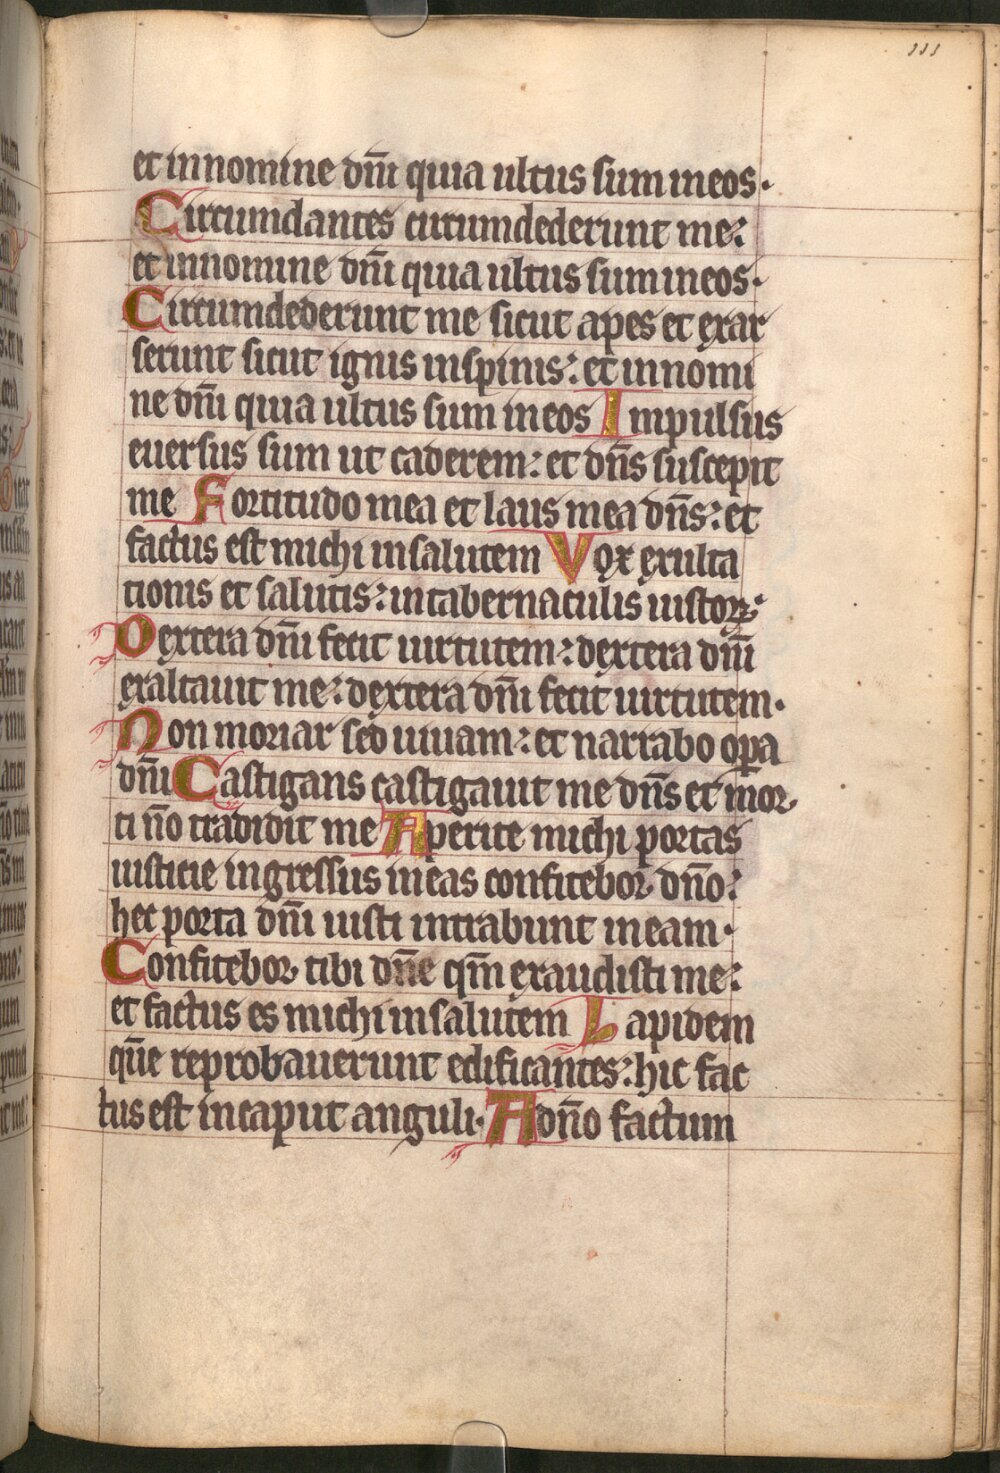 111
et in nomine dn̄i quia ultus sum in eos.
Circumdantes circumdederunt me:
et in nomine dn̄i quia ultus sum in eos.
Circumdederunt me sicut apes et exar
serunt sicut ignis in spinis: et in nomi
ne dn̄i quia ultus sum in eos Impulsus
euersus sum ut caderem: et dn̄s suscepit
me Fortitudo mea et laus mea dn̄s: et
factus est michi in salutem Vox exulta
tionis et salutis: in tabernaculis iustoꝝ.
Dextera dn̄i fecit uirtutem: dextera dn̄i
exaltauit me: dextera dn̄i fecit uirtutem.
Non moriar sed uiuam: et narrabo oꝑa
dn̄i Castigans castigauit me dn̄s et mor
ti n̄o tradidit me Aperite michi portas
iusticie ingressus in eas confitebor dn̄o:
hec porta dn̄i iusti intrabunt in eam.
Confitebor tibi dn̄e qm̄ exaudisti me:
et factus es michi in salutem Lapidem
quē reprobauerunt edificantes: hic fac
tus est in caput anguli. A dn̄o factum